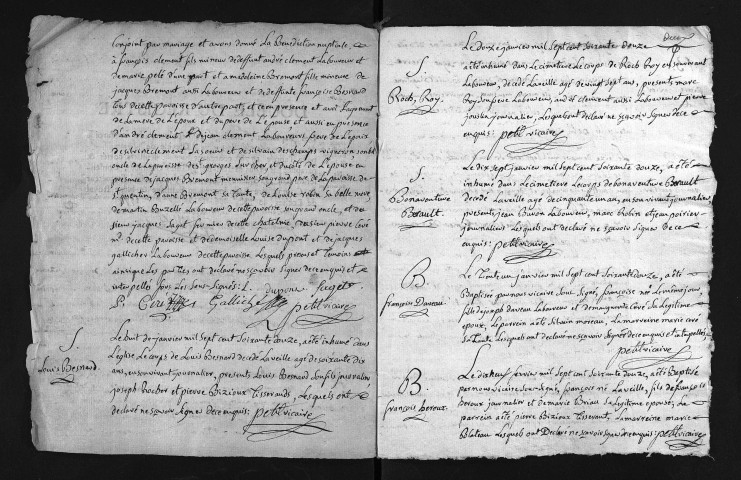 conjoint par mariage et avons donné La Benediction nuptiale,
à françois clement fils mineur de deffunt andré clement Laboureur et
de marie pelé d'une part et a medeleine Bremont fille mineure de
jacques Bremont aussi Laboureur et de deffunte françoise Besnard
tous de cette paroisse d'autre part, et ce en presence et avec Lagrement
de La mere de L'epoux et du pere de L'epouse et aussi en presence
d'andré clement & de jean clement Laboureurs frere de L'epoix
de silvere clement La soeur et de silvain deschamps vigneron son bel
oncle de La paroisse de St georges sur cher et du côté de L'epouse en
presence de jacques Bremont menuisier son grand pere de La paroisse de
St quentin, d'anne Bremont sa tante, de Louise robin sa belle mere,
de martin Buzelle Laboureur de cette paroisse son grand oncle, et de
sieur jacques Laget fermier de cette chatelnie, de sieur pierre Ceré
md de cette paroisse et demoiselle Louise dupont et de jacques
galliches Laboureur de cette paroisse Lesquels pereu et temoins
ainsi que Les parties ont declaré ne sçavoir signer de ce enquis et
interpellés fors Les sous-signés: L. Dupons Laget
P. Ceré Galliche petit vicaire
S.
Louis Besnard.
Le huit de janvier mil sept cent soixante douze, a été inhumé dans
L'eglise Le corps de Louis Besnard decedé La veille agé de soixante dix
ans, en son vivant journalier, presents Louis Besnard son fils journalier,
joseph Rocher et pierre Bizieux tisserands, Lesquels ont
declaré ne sçavoir signer de ce enquis: petit vicaire
Deux
S.
Roch, Roy.
Le Douze janvier mil sept cent soixante douze
a été inhumé dans Le cimetiere Le corps de Roch Roy en son vivant
Laboureur, decedé La veille agé de vingt sept ans, presents marc
Roy son frere Laboureur, andré clement aussi Laboureur et pierre
jouslin journalier, Lesquels ont declaré ne sçavoir signer de ce
enquis: petit vicaire
S.
Bonaventure
Berault.
Le dix sept janvier mil sept cent soixante douze, a été
inhumé dans Le cimetiere Le corps de Bonaventure Berault
decedé La veille agé de cinquante un an, en son vivant journalier
presents, jean Buron Laboureur, marc Robin et jean poirier
journaliers Lesquels ont declaré ne sçavoir signer de ce
enquis: petit vicaire
B
françois Daveau.
Le Trente un janvier mil sept cent soixante douze, a été
Baptisé par nous vicaire sous-signé, françois né Le même jour,
fils de joseph Daveau Laboureur et de marguerite Ceré sa Legitime
epoux, Le parein a été silvain moreau, La marreine marie ceré
sa tante Lesquels ont declaré ne sçavoir signer de ce enquis et interpellés
petit vicaire
B.
françois heroux.
Le dix neuf fevrier mil sept cent soixante douze, a été Baptisé
par nous vicaire sous-signé, françois né La veille, fils de françois
heroux journalier et de marie Briau sa Legitime epouse, Le
parrein a été pierre Bizieux tisserant, La marreine marie
Blateau Lesquels ont declaré ne sçavoir signer de ce enquis: petit vicaire